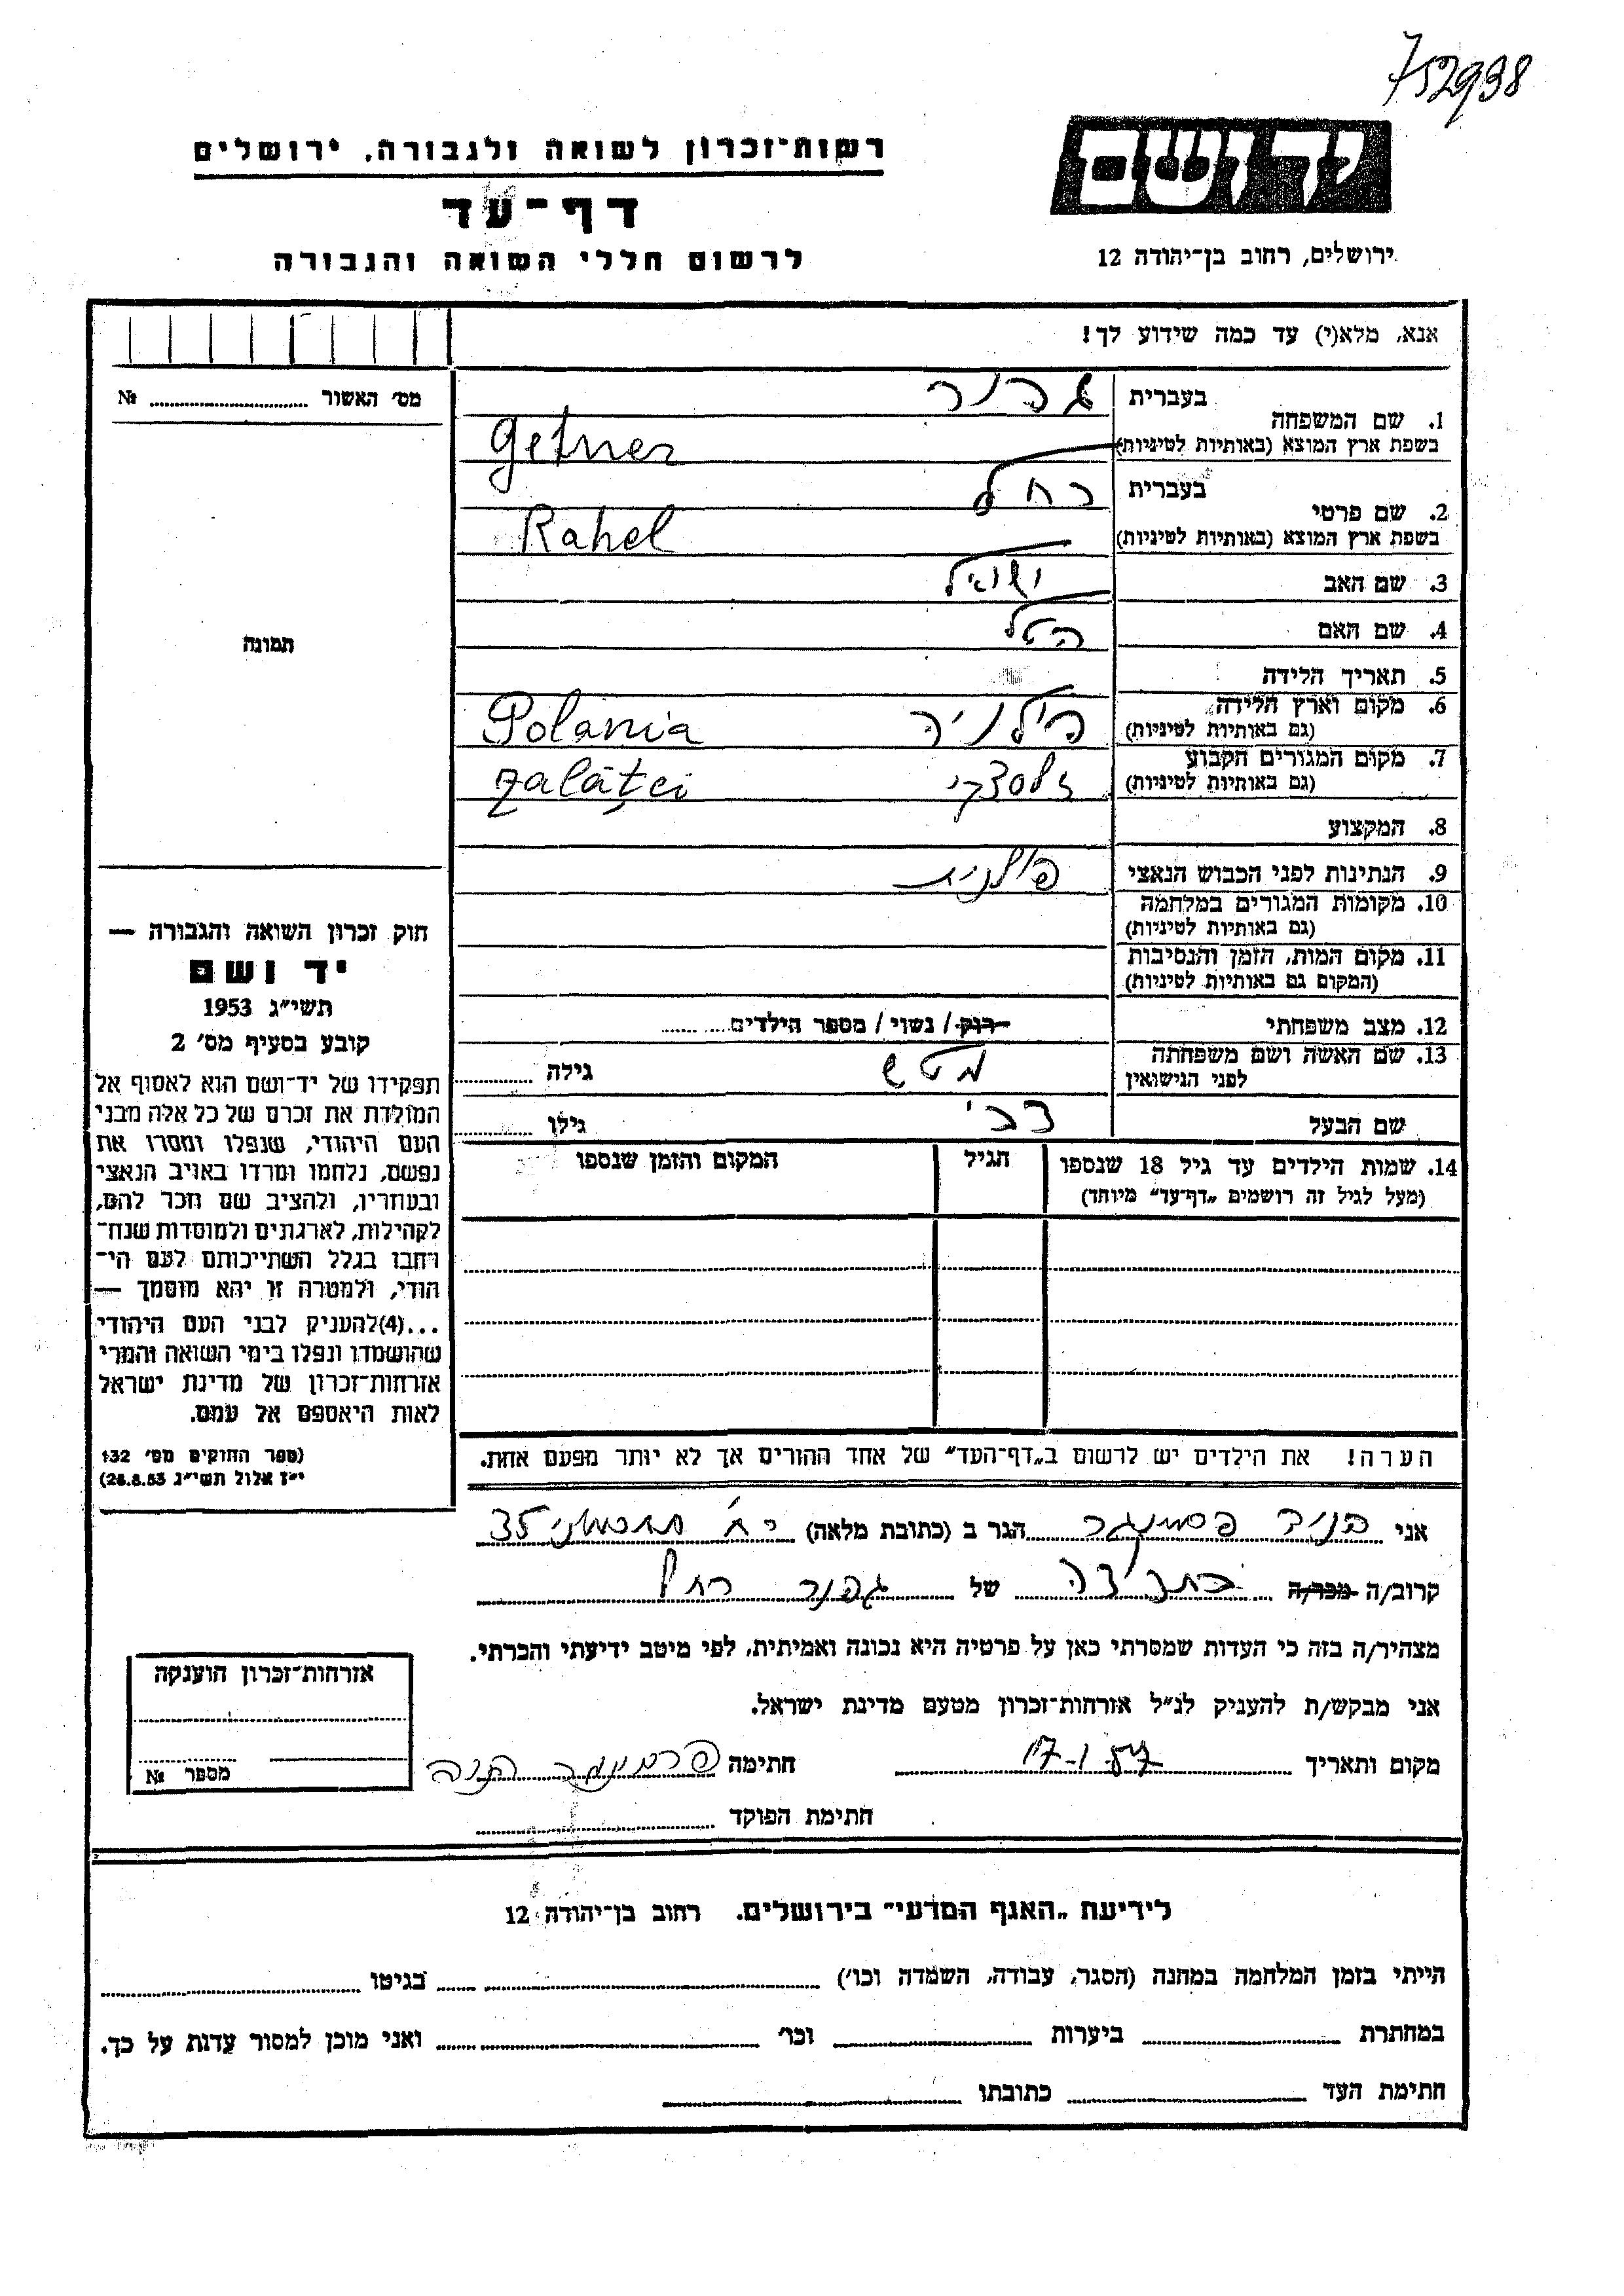 752938
יד ושם
רשות־זכרון לשואה ולגבורה, ירושלים
דף־עד
לרשום חללי השואה והגבורה
ירושלים, רחוב בן־יהודה 12
אנא, מלא(י) עד כמה שידוע לך!
מס׳ האשור № 
1. שם המשפחה
בעברית
בשפת ארץ המוצא (באותיות לטיניות)
Gefner
2. שם פרטי
בעברית רחל
בשפת ארץ המוצא (באותיות לטיניות)
Rahel
3. שם האב
4. שם האם
5. תאריך הלידה
6. מקום וארץ הלידה
(גם באותיות לטיניות)
Polania
7. מקום המגורים הקבוע
(גם באותיות לטיניות)
zalăţci
8. המקצוע
9. הנתינות לפני הכבוש הנאצי פולנית
10. מקומות המגורים במלחמה
(גם באותיות לטיניות)
11. מקום המות, הזמן והנסיבות
(המקום גם באותיות לטיניות)
12. מצב משפחתי רוק / נשוי / מספר הילדים
13. שם האשה ושם משפחתה
לפני הנישואין
גילה
שם הבעל צבי גילו
14. שמות הילדים עד גיל 18 שנספו
(מעל לגיל זה רושמים „דף־עד״ מיוחד)
הגיל
המקום והזמן שנספו
הערה! את הילדים יש לרשום ב„דף־העד״ של אחד ההורים אך לא יותר מפעם אחת.
תמונה
חוק זכרון השואה והגבורה —
יד ושם
תשי״ג 1953
קובע בסעיף מס׳ 2
תפקידו של יד־ושם הוא לאסוף אל
המולדת את זכרם של כל אלה מבני
העם היהודי, שנפלו ומסרו את
נפשם, נלחמו ומרדו באויב הנאצי
ובעוזריו, ולהציב שם וזכר להם,
לקהילות, לארגונים ולמוסדות שנח־
רבו בגלל השתייכותם לעם הי־
הודי, ולמטרה זו יהא מוסמך —
...(4)להעניק לבני העם היהודי
שהושמדו ונפלו בימי השואה והמרי
אזרחות־זכרון של מדינת ישראל
לאות היאספם אל עמם.
(ספר החוקים מס׳ 132
י״ז אלול תשי״ג 28.8.53)
אני הגר ב (כתובת מלאה) 35
קרוב/ה מכר/ה של גפנר רחל
מצהיר/ה בזה כי העדות שמסרתי כאן על פרטיה היא נכונה ואמיתית, לפי מיטב ידיעתי והכרתי.
אני מבקש/ת להעניק לנ״ל אזרחות־זכרון מטעם מדינת ישראל.
מקום ותאריך 17-1-57 חתימה
חתימת הפוקד
אזרחות־זכרון הוענקה
מספר №
לידיעת „האגף המדעי״ בירושלים. רחוב בן־יהודה 12
הייתי בזמן המלחמה במחנה (הסגר, עבודה, השמדה וכו׳) בגיטו
במחתרת ביערות וכו׳ ואני מוכן למסור עדות על כך.
חתימת העד כתובתו